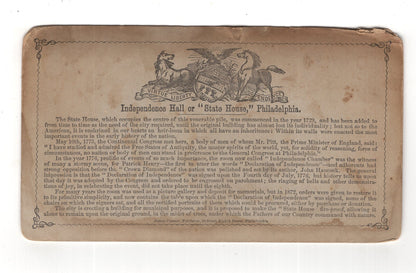 Independence Hall or "State House," Philadelphia.
The State House, which occupies the centre of this venerable pile, was commenced in the year 1729, and has been added to
from time to time as the need of the city required, until the original building has almost lost its individuality; but not so to the
Americans, it is enshrined in our hearts an heir-loom in which all have an inheritance! Within its walls were enacted the most
important events in the early history of the nation.
May 10th, 1775, the Continental Congress met here, a body of men of whom Mr. Pitt, the Prime Minister of England, said:
"I have studied and admired the Free States of Antiquity, the master spirits of the world, yet, for solidity of reasoning, force of
circumstances, no nation or body of men can stand in preference to the Continental Congress of Philadelphia."
In the year 1776, prolific of events of so much importance, the room now called "Independence Chamber" was the witness
of many a stormy scene, for Patrick Henry—the first to utter the words "Declaration of Independence"—and adherents had
strong opposition before this "Crown Diamond" of the nation was polished and set by its author, John Hancock. The general
impression is that the "Declaration of Independence" was signed upon the Fourth day of July, 1776, but history tells us upon
that day it was adopted by the Congress and ordered to be engrossed on parchment; the ringing of bells and other demonstra-
tions of joy, in celebrating the event, did not take place until the eighth.
For many years the room was used as a picture gallery and depost for memorials, but in 1872, orders were given to restore it
to its primitive simplicity, and now contains the table upon which the "Declaration of Independence" was signed, some of the
chairs on which the signers sat, and all the certified portraits of them which could be procured, either by purchase or donation.
The city is erecting a building for municipal purposes, and it is proposed to make the "State House" fire-proof, allowing it
alone to remain upon the original ground, in the midst of trees, under which the Fathers of our Country communed with nature.